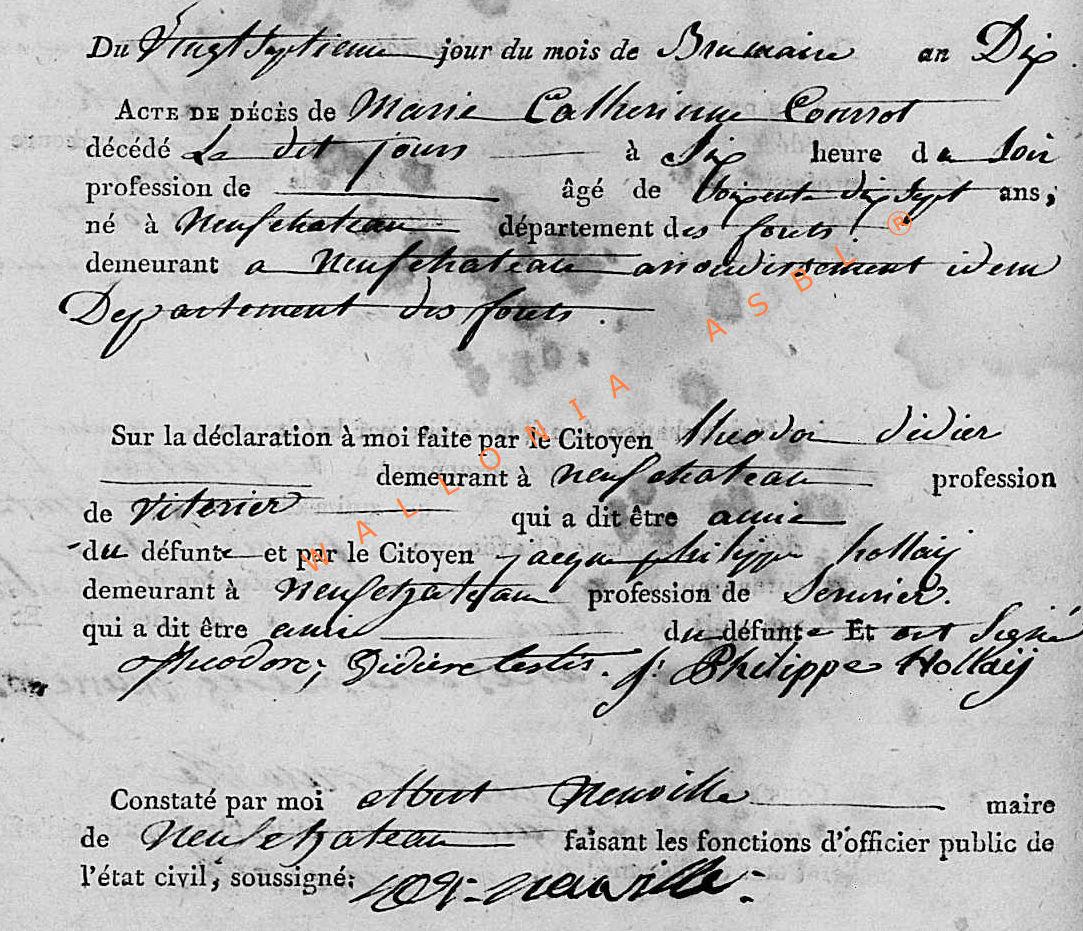 Du Vingt Septieme jour du mois de Brumaire an Dix.
ACTE DE DÉCÈS de Marie Catherinne Courrot
décédé Le dit jours à Six heure du Soir
profession de âgé de Soixente dix Sept ans,
né à Neufchateau département des forets
demeurant a Neufchateau arrondissement idem
Departement des forets.
Sur la déclaration à moi faite par le Citoyen theodor didier
demeurant à neufchateau profession
de viterier qui a dit être amie
du défunte et par le Citoyen jacque philippe hollaij
demeurant à Neufchateau profession de Serurier.
qui a dit être amie du défunte Et ont Signé
theodore; Didiere testis. J: Philippe Hollaij
Constaté par moi albert Neuville maire
de Neufchateau faisant les fonctions d'officier public de
l'état civil, soussigné: neuville
WALLONIA ASBL ®